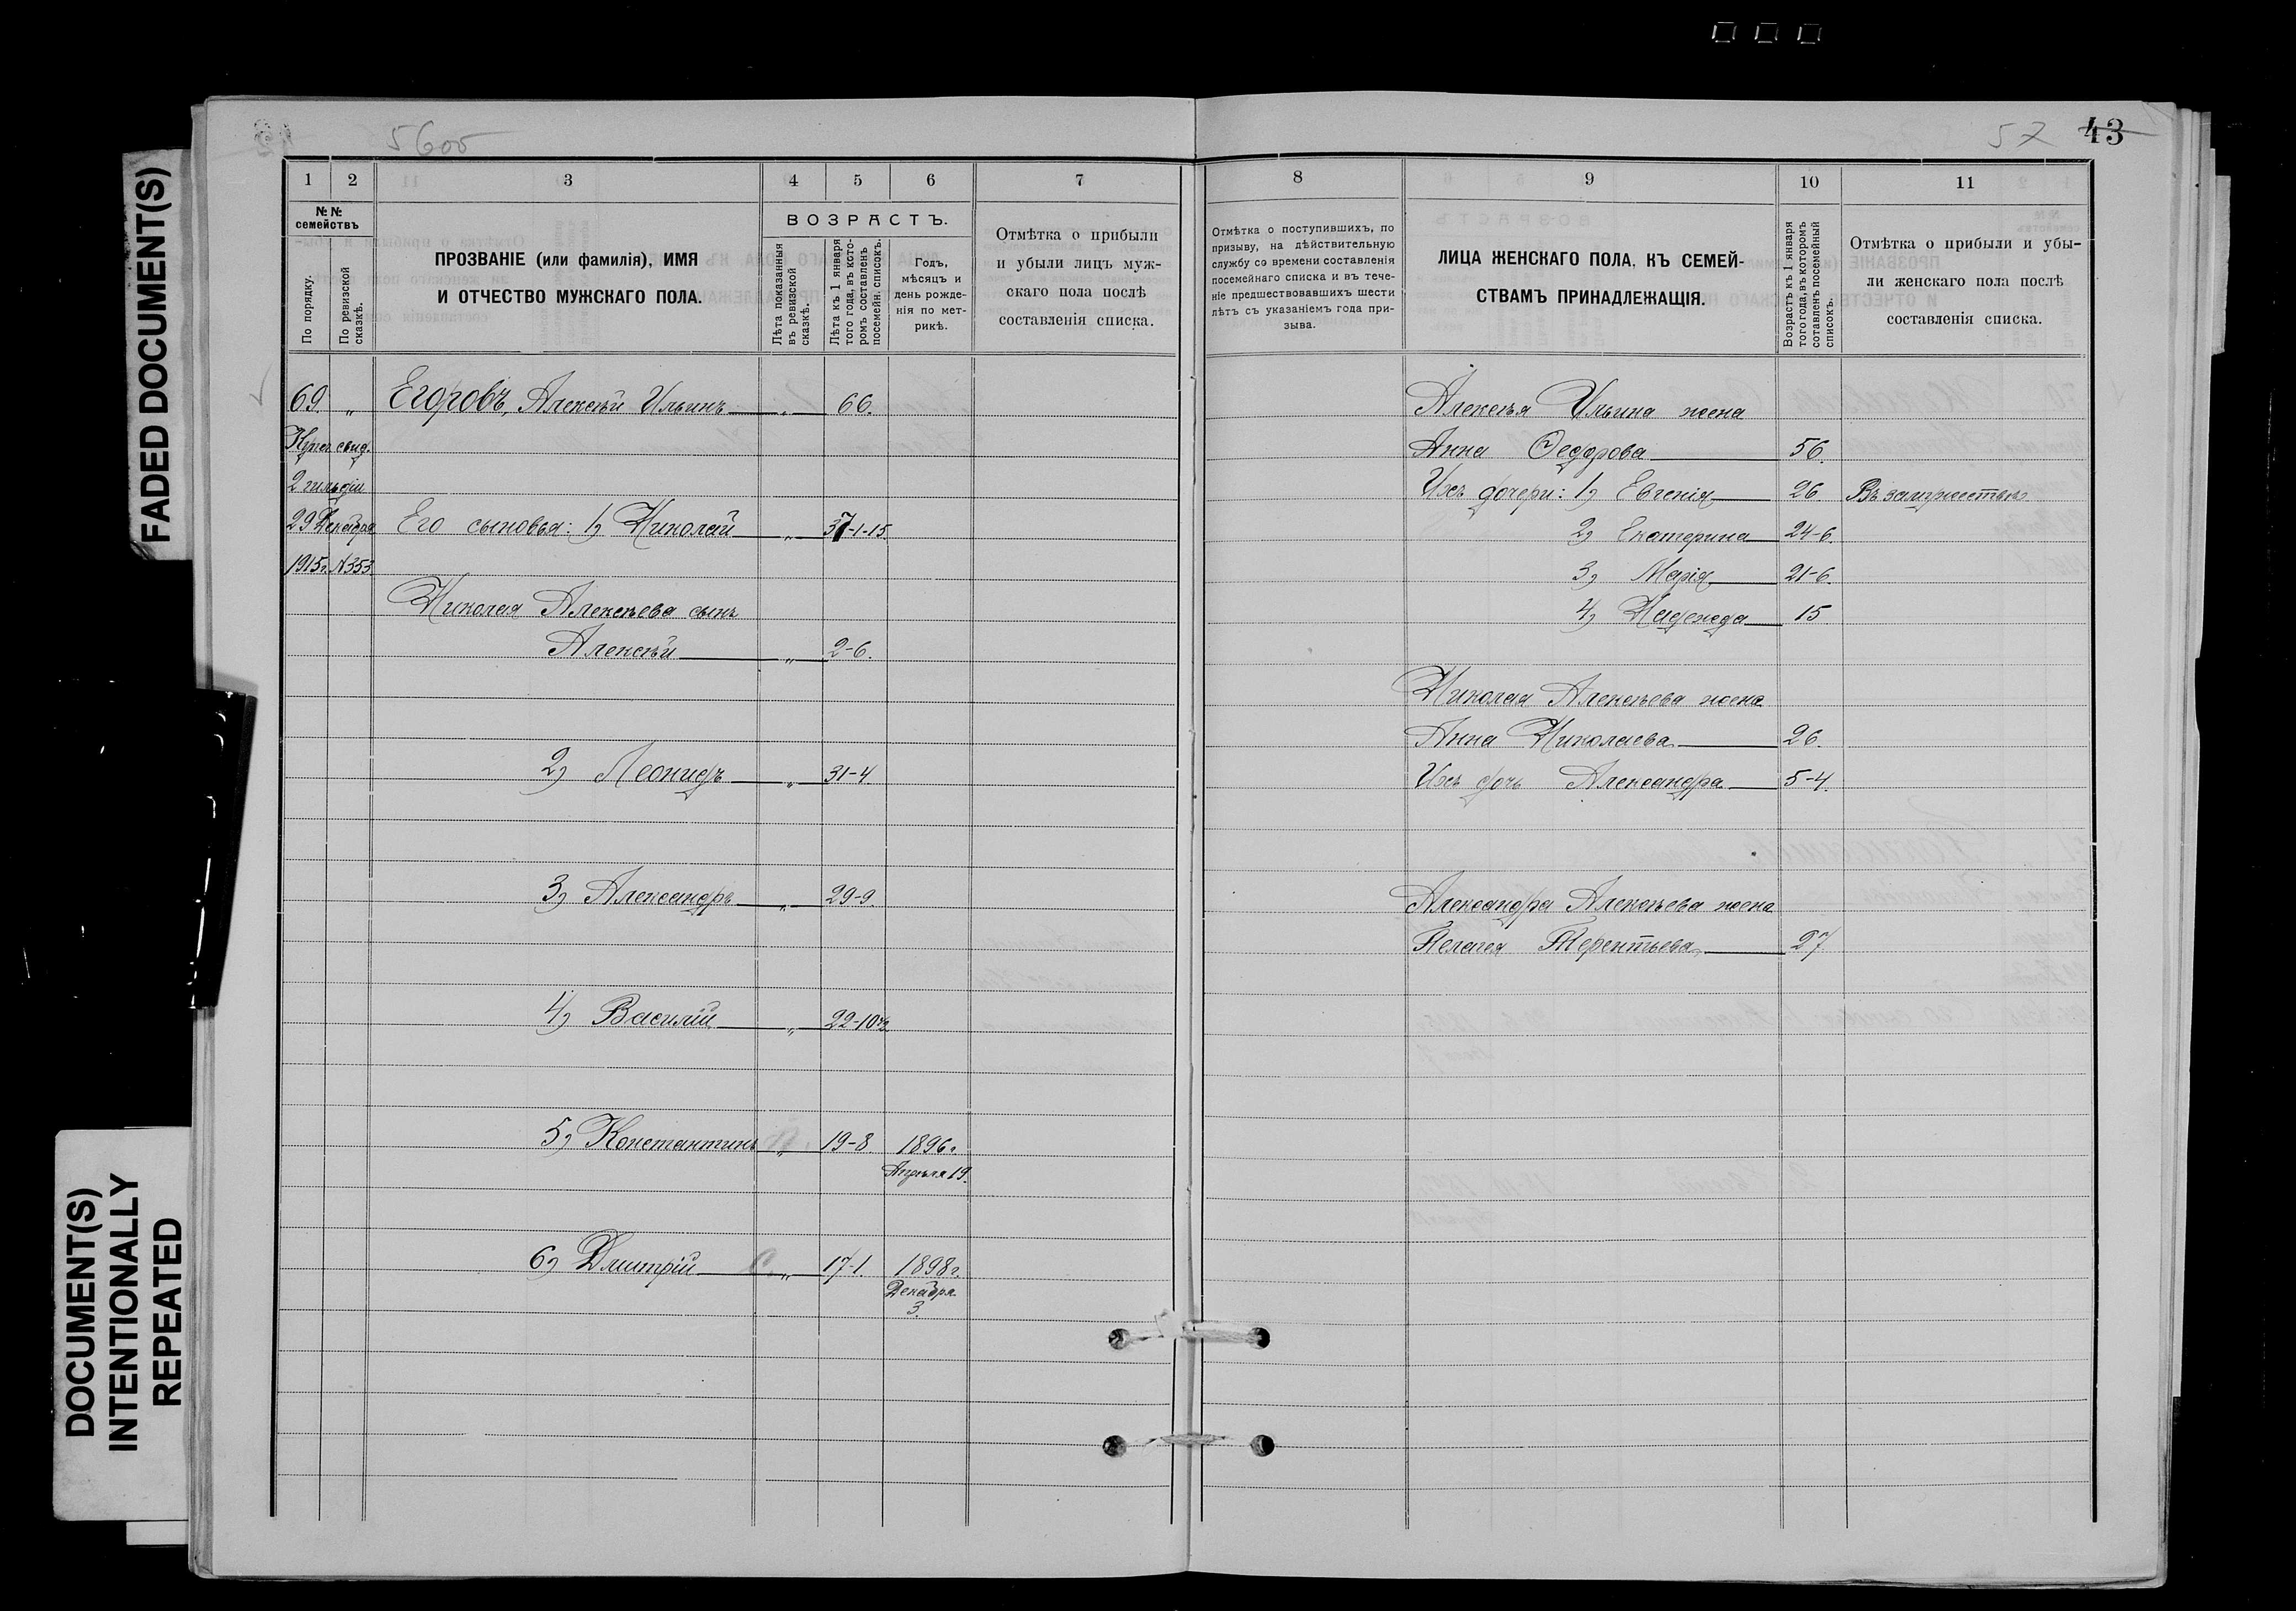 FADED DOCUMENT(S)
DOCUMENT(S)
INTENTIONALLY
REPEATED
57 43
1 2 3 4 5 6 7
№№
семействъ
По порядку.
По ревизской
сказкѣ.
ПРОЗВАНІЕ (или фамилія), ИМЯ
И ОТЧЕСТВО МУЖСКАГО ПОЛА.
ВОЗРАСТЪ.
Лѣта показанныя
въ ревизской
сказкѣ.
Лѣта къ 1 января
того года, въ кото-
ромъ составленъ
посемейн. списокъ.
Годъ,
мѣсяцъ и
день рожде-
нія по мет-
рикѣ.
Отмѣтка о прибыли
и убыли лицъ муж-
скаго пола послѣ
составленія списка.
69. „ Егоровъ, Алексѣй Ильинъ „ 66.
Купеч. свид.
2 гильдіи
29 Декабря Его сыновья: 1) Николай „ 37-1-15.
1915г. №353.
Николая Алексѣева сынъ
Алексѣй „ 2-6.
2) Леонидъ „ 31-4.
3) Александръ „ 29-9.
4) Василій „ 22-10½
5) Константинъ „ 19-8 1896г.
Апрѣля 19.
6) Дмитрій „ 17-1. 1898г.
Декабря
3.
8 9 10 11
Отмѣтка о поступившихъ, по
призыву, на дѣйствительную
службу со времени составленія
посемейнаго списка и въ тече-
ніе предшествовавшихъ шести
лѣтъ съ указаніемъ года при-
зыва.
ЛИЦА ЖЕНСКАГО ПОЛА, КЪ СЕМЕЙ-
СТВАМЪ ПРИНАДЛЕЖАЩІЯ.
Возрастъ къ 1 января
того года, въ которомъ
составленъ посемейный
списокъ.
Отмѣтка о прибыли и убы-
ли женскаго пола послѣ
составленія списка.
Алексѣя Ильина жена
Анна Ѳедорова 56.
Ихъ дочери: 1) Евгенія 26. Въ замужествѣ
2) Екатерина 24-6.
3) Марія 21-6.
4) Надежда 15
Николая Алексѣева жена
Анна Николаева 26.
Ихъ дочь Александра 5-4.
Александра Алексѣева жена
Пелагея Терентьева 27